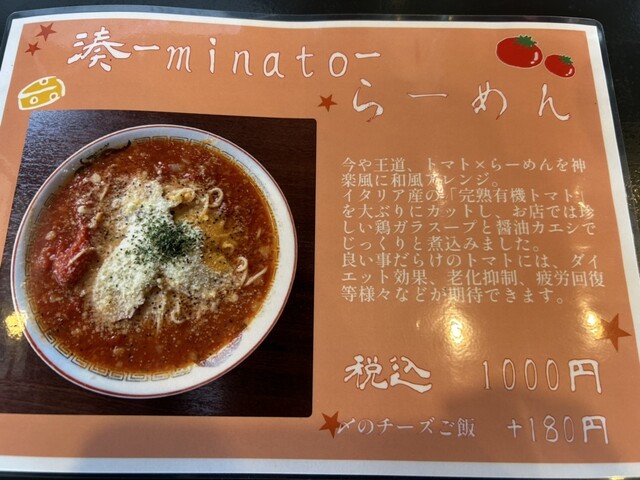 湊-minato-
らーめん
今や王道、トマト×らーめんを神
楽風に和風アレンジ。
イタリア産の「完熟有機トマト」
を大ぶりにカットし、お店では珍
しい鶏ガラスープと醤油カエシで
じっくりと煮込みました。
良い事だらけのトマトには、ダイ
エット効果、老化抑制、疲労回復
等様々などが期待できます。
税込 1000円
〆のチーズご飯 +180円